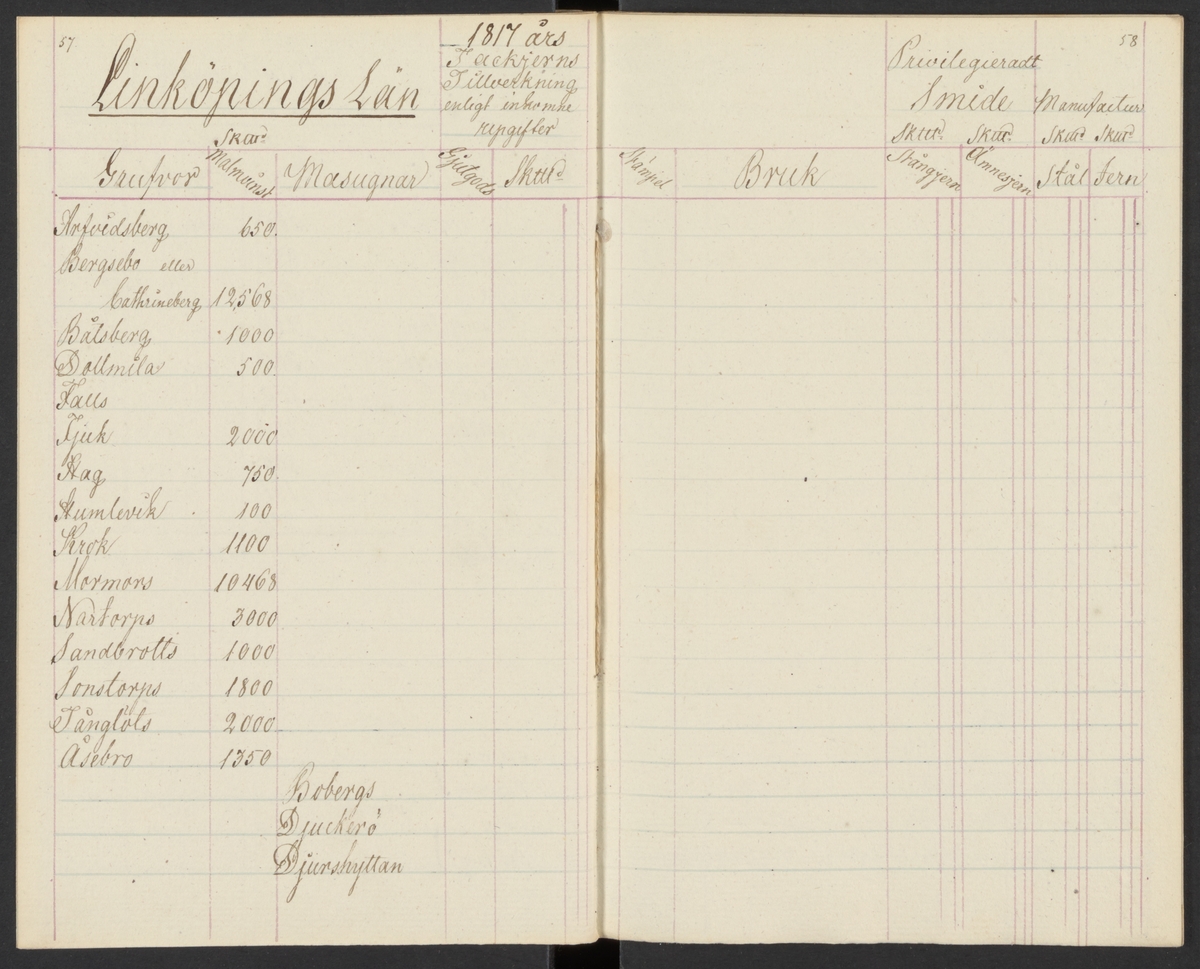 57
Linköpings Län
1817 års
Tackjerns
Tillverkning
enligt inkomne
upgifter
Skttd
Grufvor Malmvinst Masugnar Gjutgods Skttd
Arfvidsberg 650.
Bergsebo eller
Cathrineberg 12,568
Båtsberg 1000
Dollmila 500.
Falls
Fjuk 2000
Hag 750.
Humlevik 100
Krok 1100
Mormors 10468
Nartorps 3000
Sandbrotts 1000
Sonstorps 1800
Tånglöts 2000
Åsebro 1350
Bobergs
Djuckerö
Djurshyttan
58
Privilegieradt
Smide Manufactur
Skttd Skttd Skttd Skttd
Stämpel Bruk Stångjern Ämnesjern Stål Jern